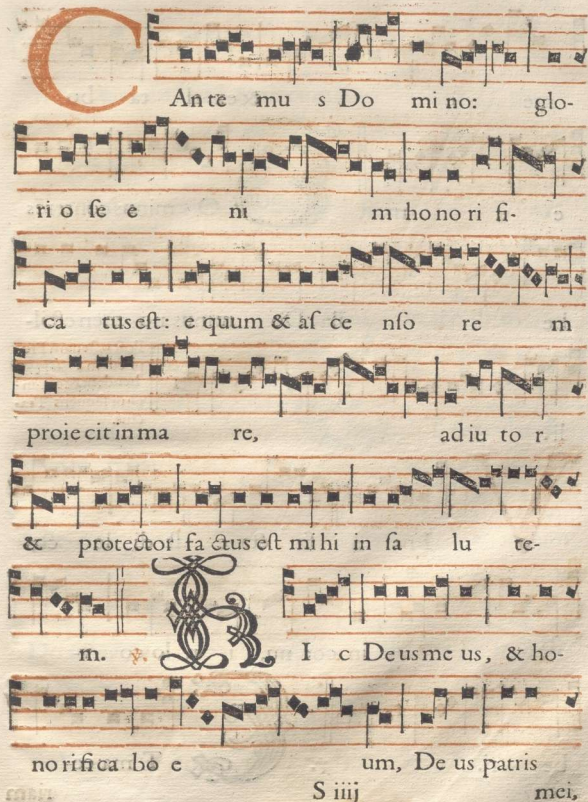 CAnte mu s Do mi no: glo-
ri o ſe e ni m ho no ri fi-
ca tus eſt: e quum & aſ ce nſo re m
proie cit in ma re, ad iu to r
& protector fa ctus eſt mi hi in ſa lu te-
m. ℣. H I c Deus me us, & ho-
no rifi ca bo e um, De us patris
S iiij mei,